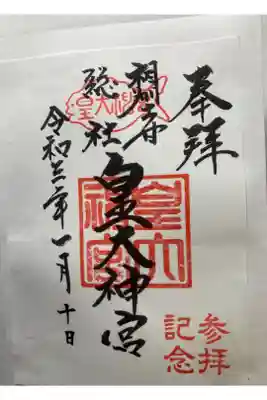 奉拝
総社
皇大神宮
令和三年一月十日
皇大
神宮
参拝
記念